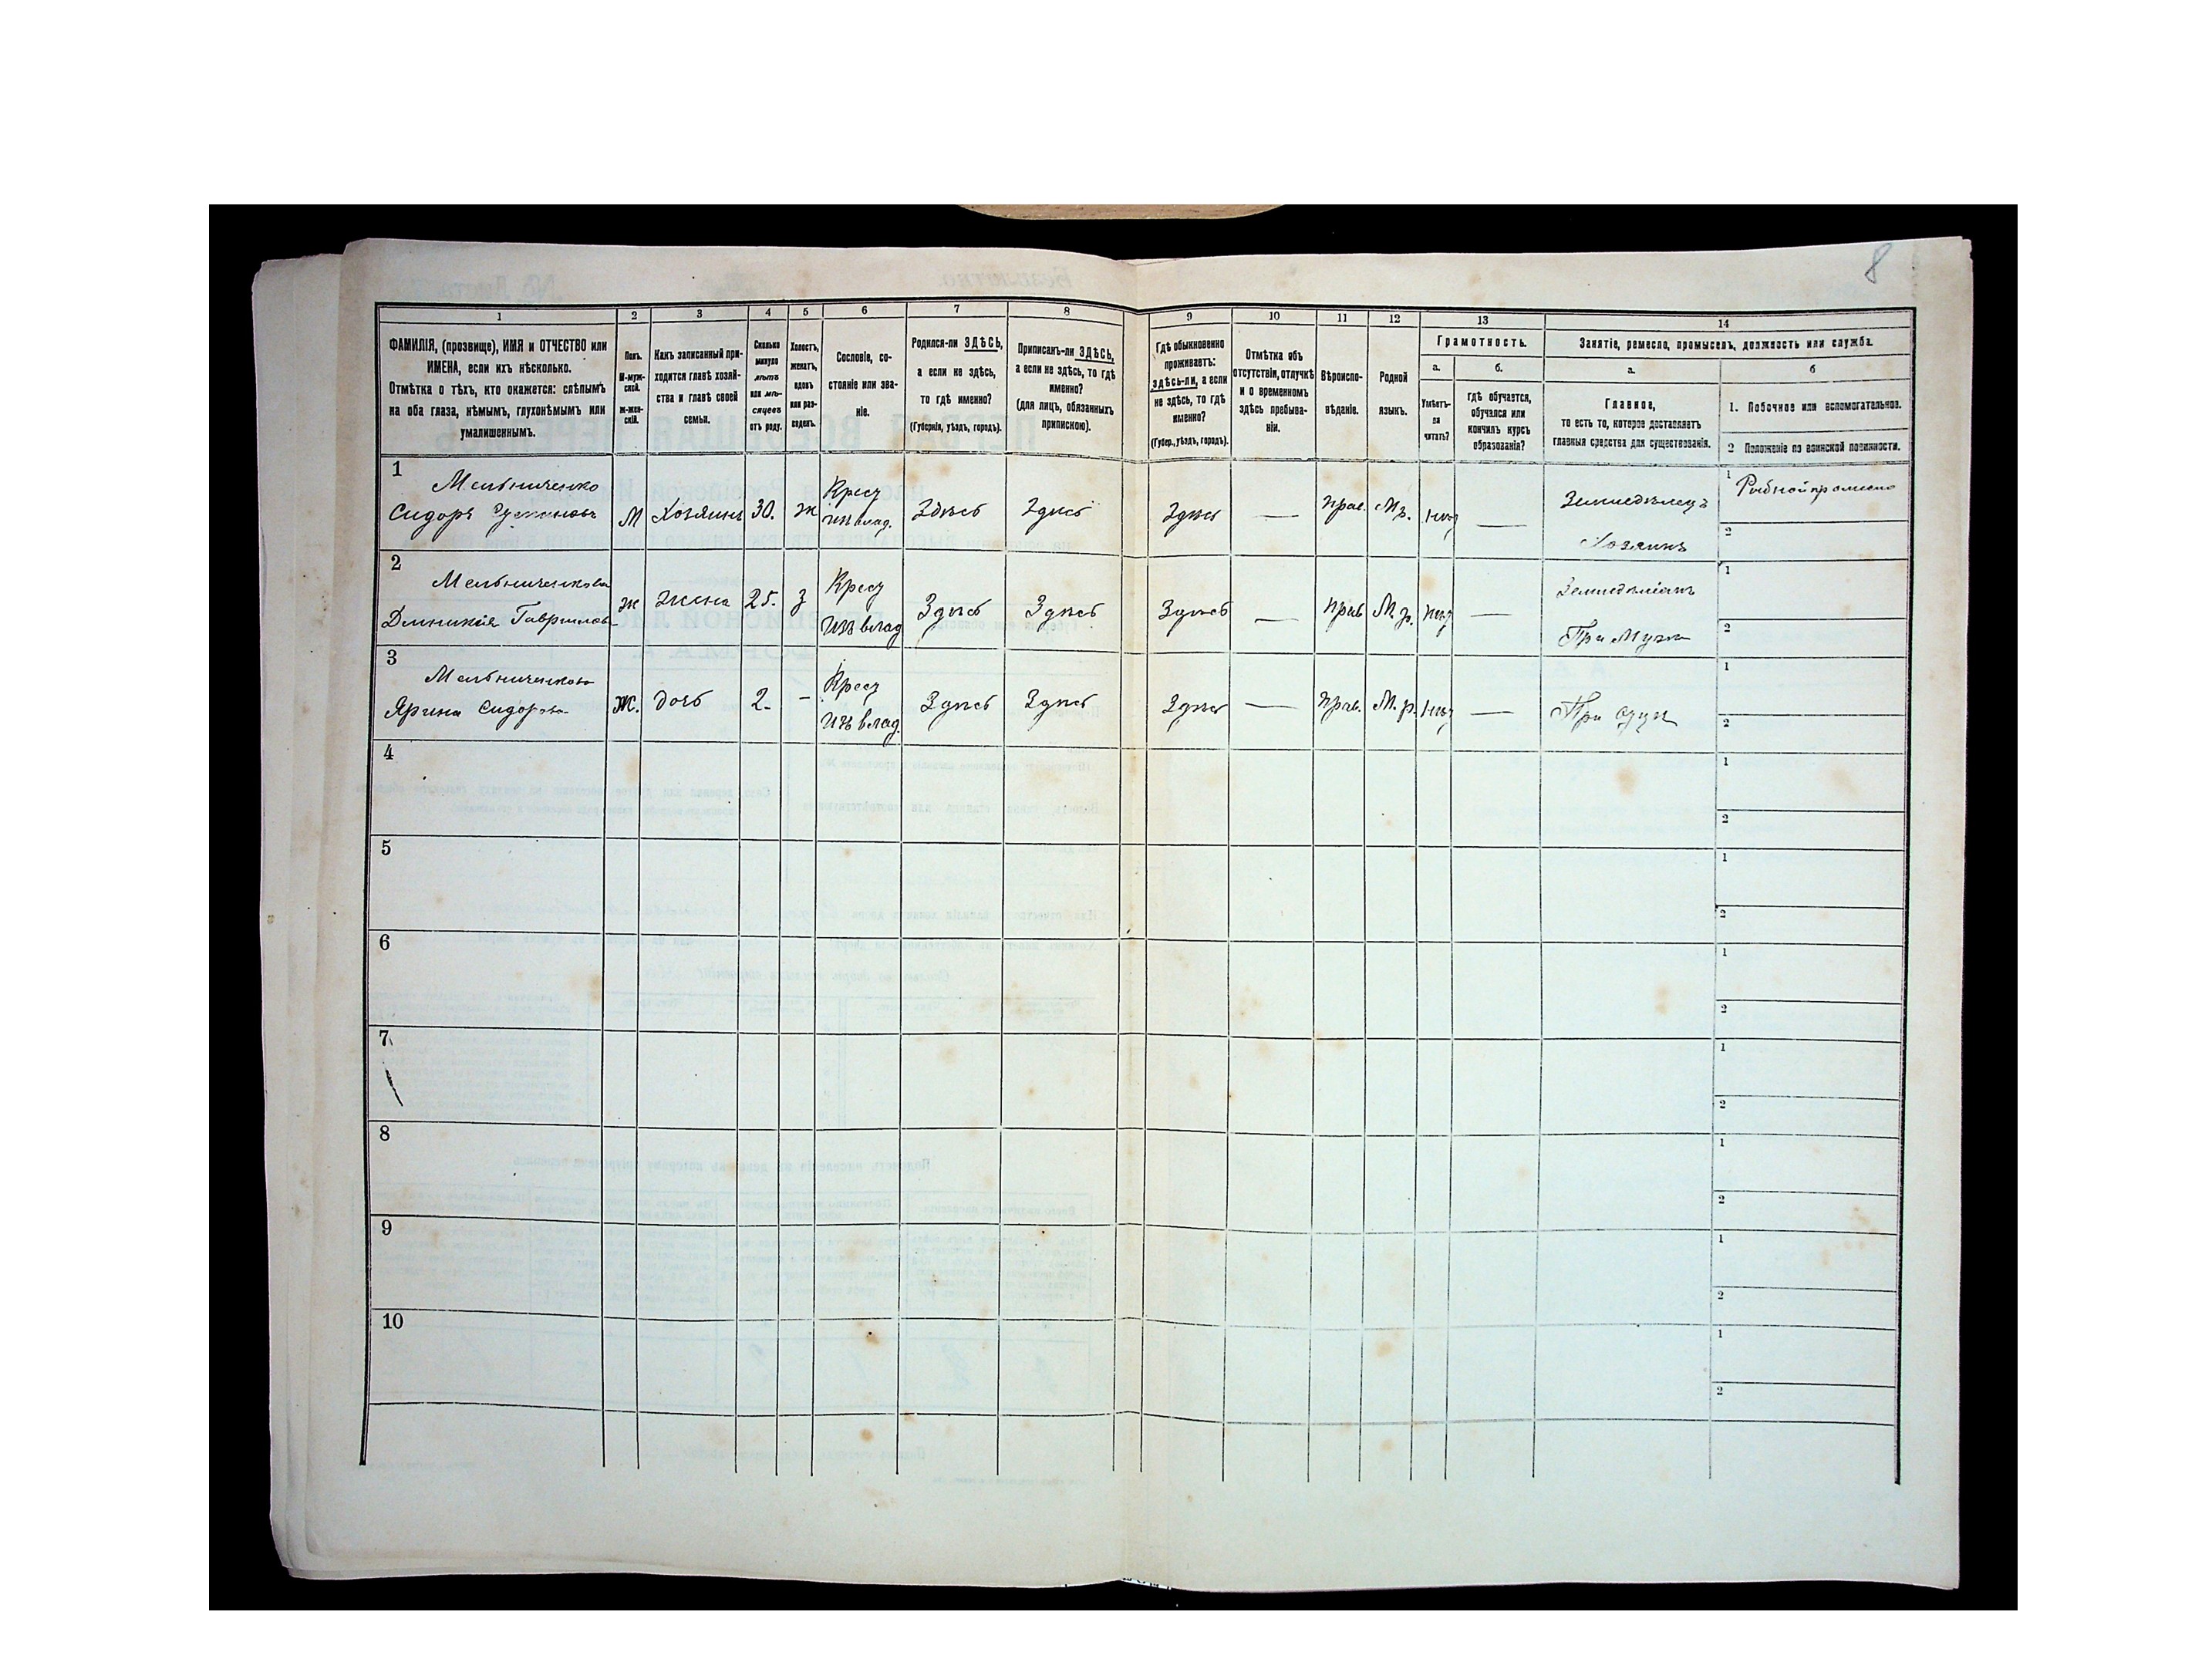 8
1 2 3 4 5 6 7 8 9 10 11 12 13 14
ФАМИЛІЯ, (прозвище), ИМЯ и ОТЧЕСТВО или
ИМЕНА, если ихъ нѣсколько.
Отмѣтка о тѣхъ, кто окажется: слѣпымъ
на оба глаза, нѣмымъ, глухонѣмымъ или
умалишеннымъ.
Полъ.
М-муж-
ской.
ж-жен-
скій.
Какъ записанный при-
ходится главѣ хозяй-
ства и главѣ своей
семьи.
Сколько
минуло
лѣтъ
или мѣ-
сяцевъ
отъ роду.
Холостъ,
женатъ,
вдовъ
или раз-
веденъ.
Сословіе, со-
стояніе или зва-
ніе.
Родился-ли ЗДѢСЬ,
а если не здѣсь,
то гдѣ именно?
(Губернія, уѣздъ, городъ).
Приписанъ-ли ЗДѢСЬ,
а если не здѣсь, то гдѣ
именно?
(для лицъ, обязанныхъ
припискою).
Гдѣ обыкновенно
проживаетъ:
здѣсь-ли, а если
не здѣсь, то гдѣ
именно?
(Губер., уѣздъ, городъ).
Отмѣтка объ
отсутствіи, отлучкѣ
и о временномъ
здѣсь пребыва-
ніи.
Вѣроиспо-
вѣданіе.
Родной
языкъ.
Грамотность.
а.
Умѣетъ-
ли
читать?
б.
гдѣ обучается,
обучался или
кончилъ курсъ
образованія?
Занятіе, ремесло, промыселъ, должность или служба.
а.
Главное,
то есть то, которое доставляетъ
главныя средства для существованія.
б
1. Побочное или вспомогательное.
2 Положеніе по воинской повинности.
1
Мельниченко
Сидоръ
М Хозяинъ 30. ж
Крест
изъ влад.
Здѣсь Здѣсь Здѣсь — прав. М.р. нѣт —
Земледѣлецъ
Хозяинъ
1 Рыбной промысл
2
2
Мельниченкова
Домникія Гаврилова
ж жена 25. з
Крест
Изъ влад
Здѣсь Здѣсь Здѣсь — прав М.р. нѣт —
При Мужѣ
1
2
3
Мельниченкова
Ярина Сидорова
ж. дочь 2. -
Крест
Изъ влад.
Здѣсь Здѣсь Здѣсь — прав. М.р. нѣт —
При отцѣ
1
2
4
1
2
5
1
2
6
1
2
7
1
2
8
1
2
9
1
2
10
1
2